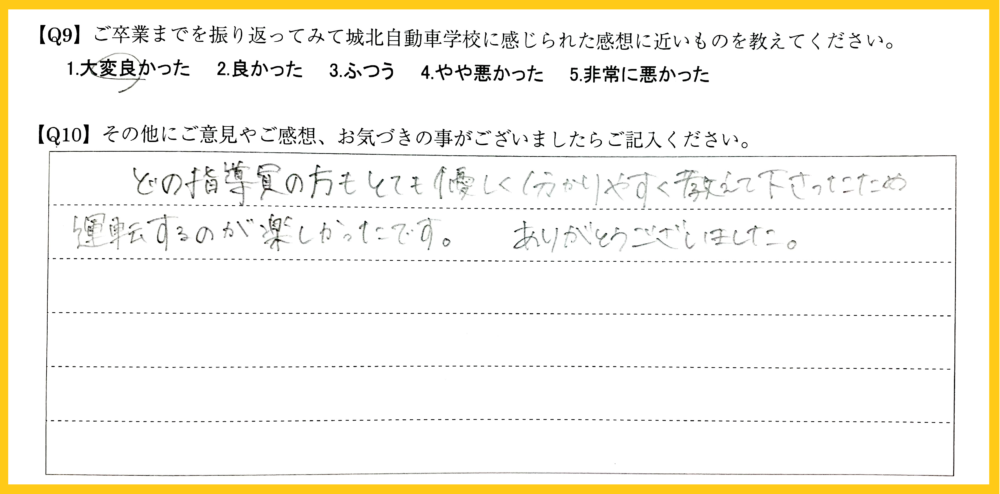 【Q9】ご卒業までを振り返ってみて城北自動車学校に感じられた感想に近いものを教えてください。
1.大変良かった 2.良かった 3.ふつう 4.やや悪かった 5.非常に悪かった
【Q10】その他にご意見やご感想、お気づきの事がございましたらご記入ください。
どの指導員の方もとても優しく分かりやすく教えて下さったため
運転するのが楽しかったです。 ありがとうございました。